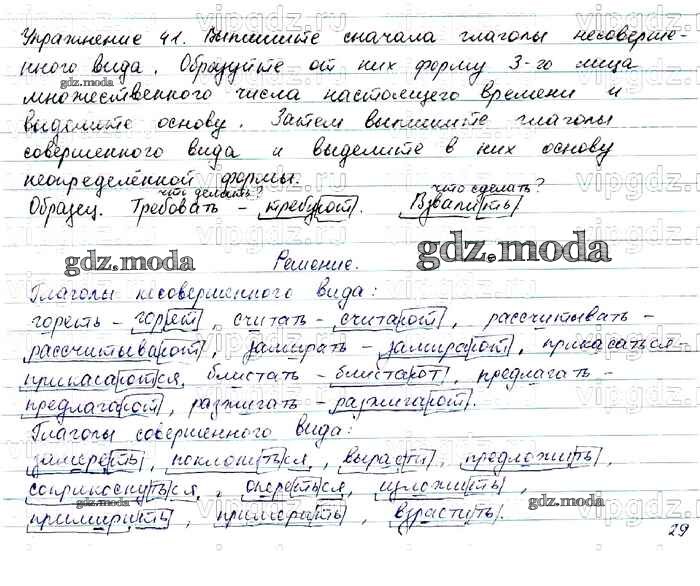 Упражнение 41. Выпишите сначала глаголы несоверше-
нного вида. Образуйте от них форму 3-го лица
множественного числа настоящего времени и
выделите основу. Затем выпишите глаголы
совершенного вида и выделите в них основу
неопределённой формы.
что делать? что сделать?
Образец. Требовать - требуют. Взвалить
Решение.
Глаголы несовершенного вида:
гореть - горят, считать - считают, рассчитывать -
рассчитывают, замирать - замирают, прикасаться -
прикасаются, блистать - блистают, предлагать -
предлагают, разжигать - разжигают.
Глаголы совершенного вида:
замереть, поклониться, вырасти, предложить,
соприкоснуться, опереться, изложить,
примирить, примерить, взрастить.
29
gdz.moda
gdz.moda
gdz.moda
gdz.moda
gdz.moda
vipgdz.ru